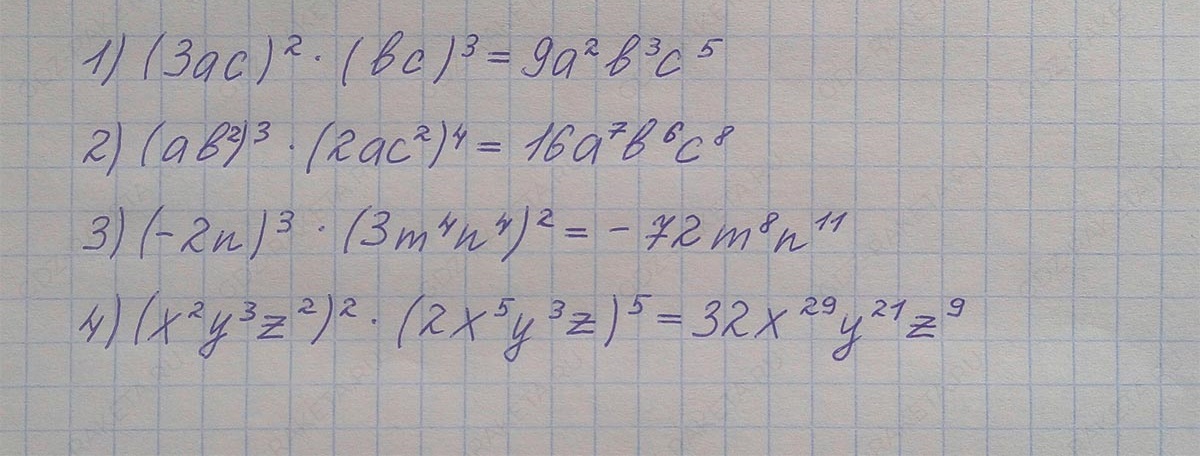 1) (3ac)² · (bc)³ = 9a²b³c⁵
2) (ab²)³ · (2ac²)⁴ = 16a⁷b⁶c⁸
3) (-2n)³ · (3m⁴n⁴)² = -72m⁸n¹¹
4) (x²y³z²)² · (2x⁵y³z)⁵ = 32x²⁹y²¹z⁹